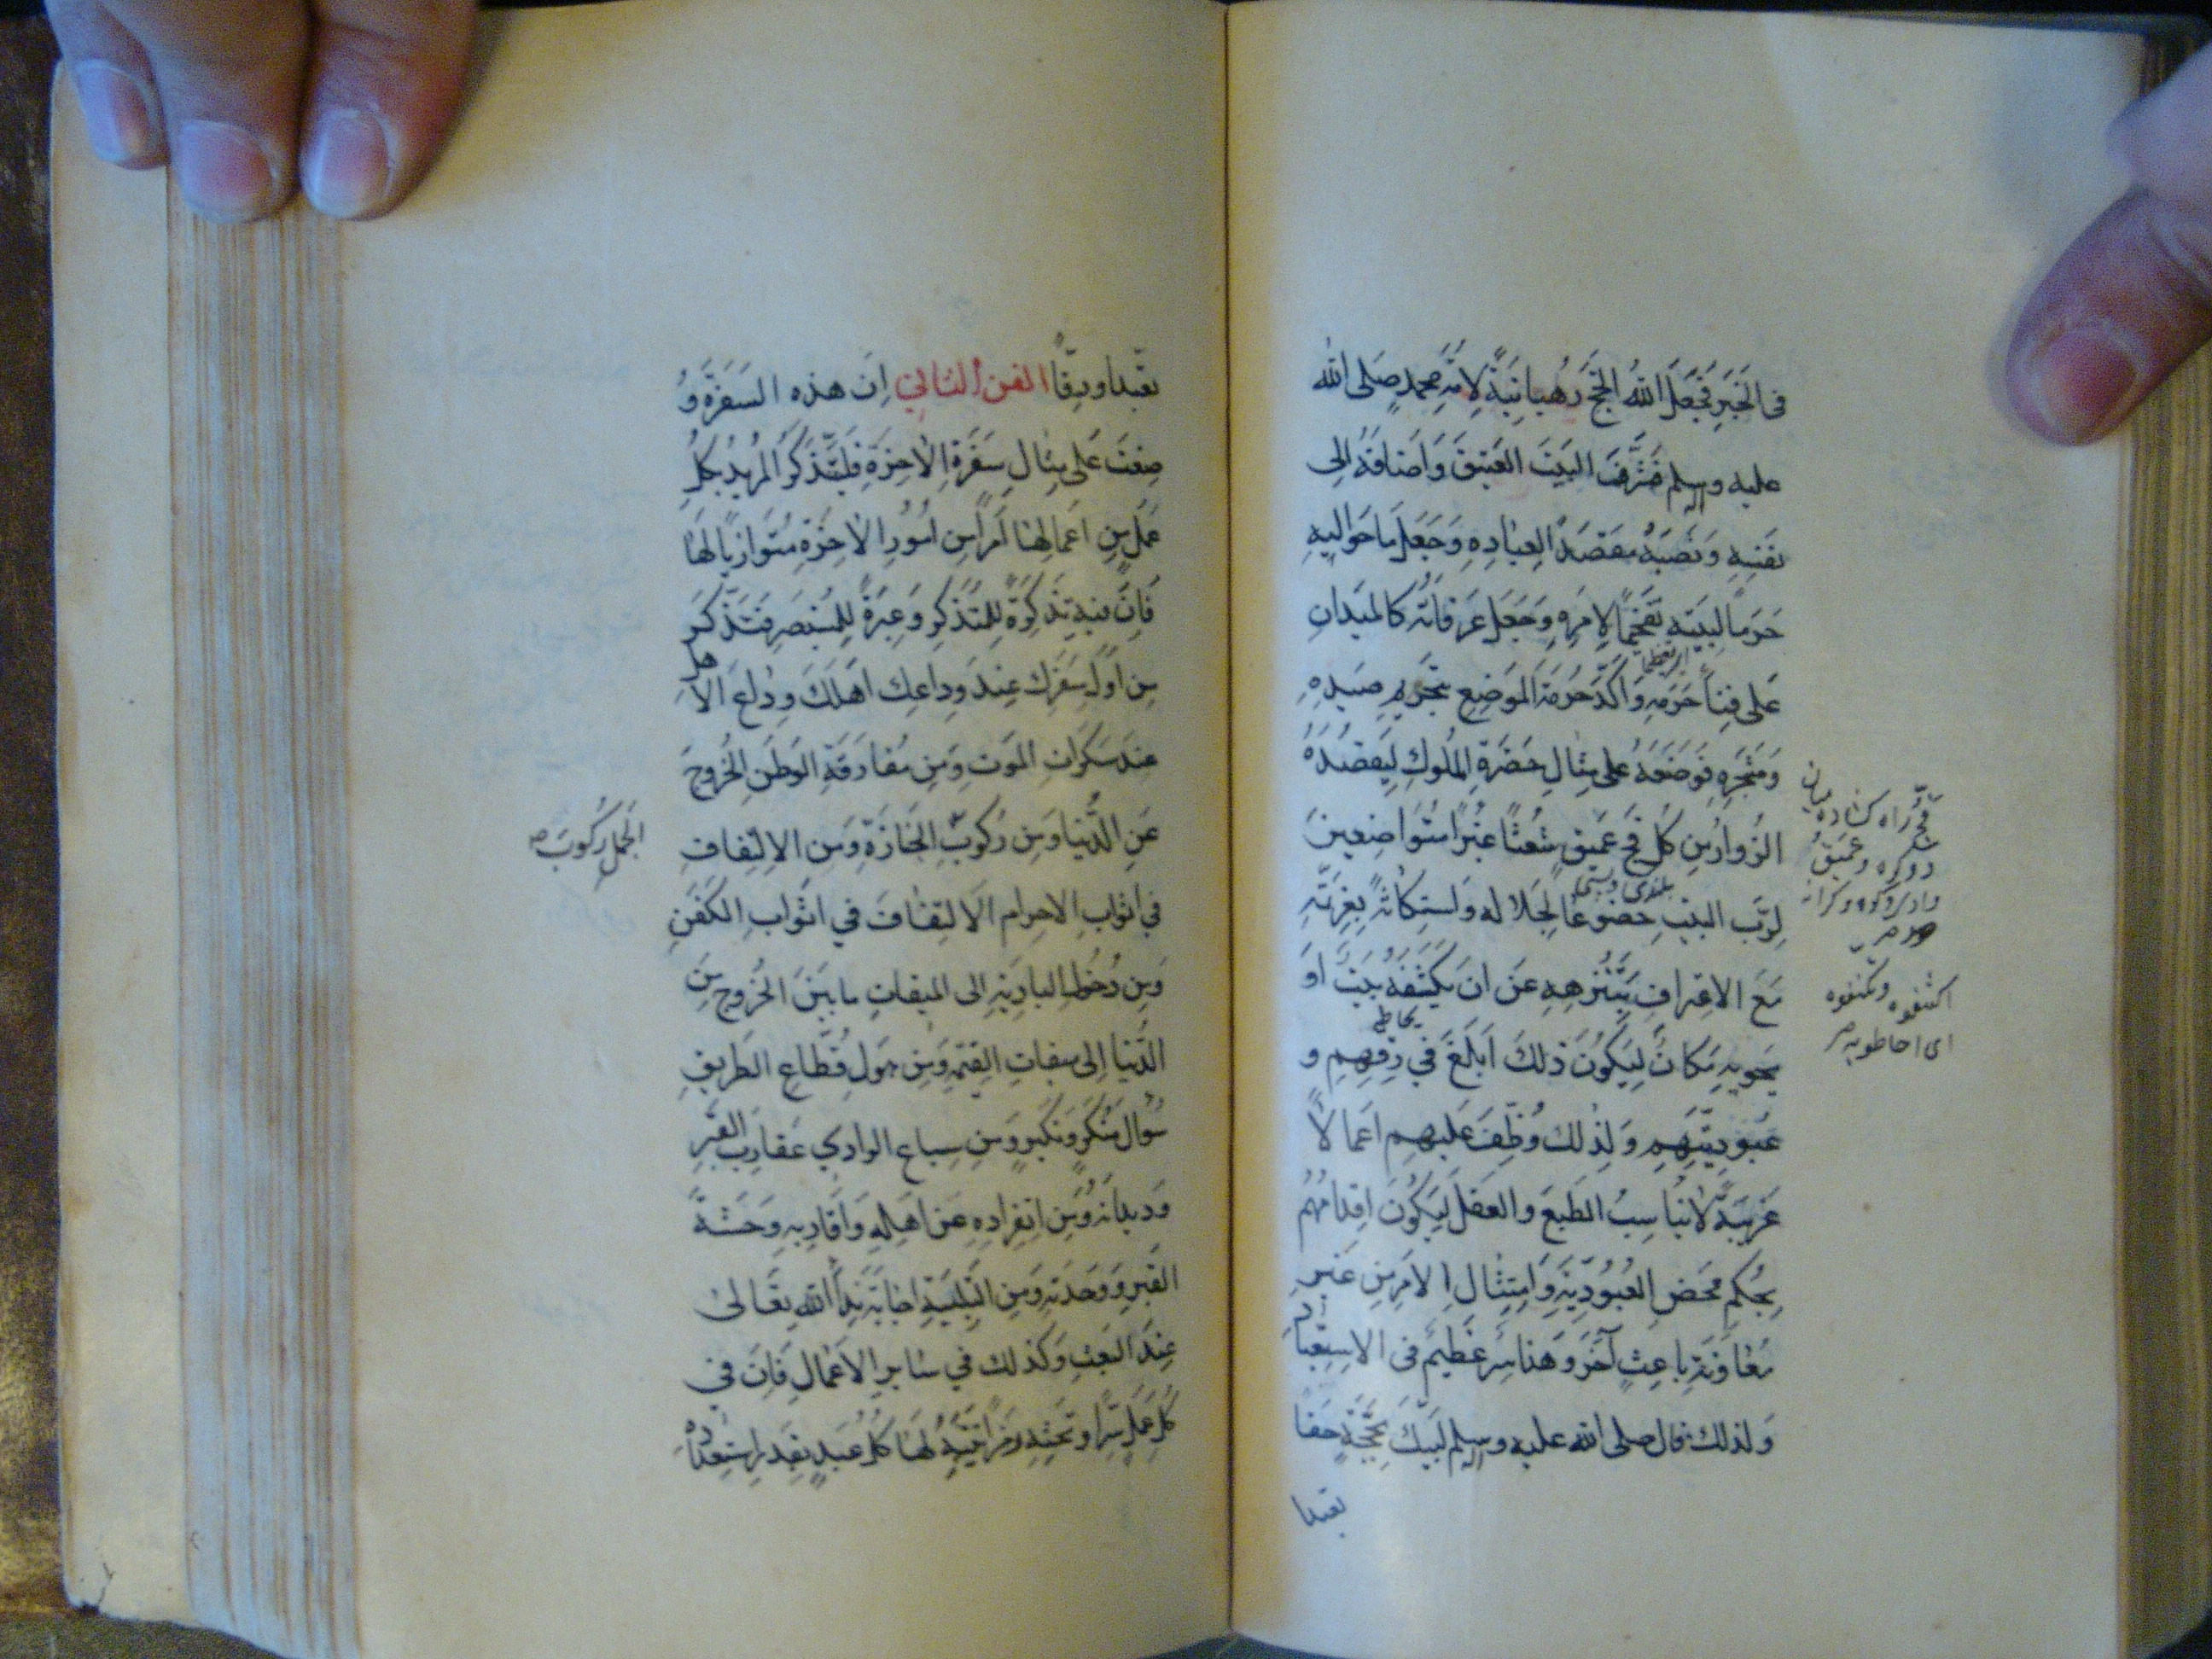 فى الخَبَرِ فَجَعَلَ اللهُ الحَجَّ رَهبانِيَّةً لِاُمَّةِ محمدٍ صَلى الله
عليه وسلم فَشَرَّفَ البَيتَ العَتِيقَ وَاَضَافَهُ اِلى
نفسِهِ وَنَصَبَهُ مَقصَدًا لِعِبَادِهِ وَجَعَلَ مَا حَوَالَيهِ
حَرَمًا لِبَيتِهِ تَفخِيمًا لِاَمرِهِ وَجَعَلَ عَرَفَاتَهُ كالميَدانِ
اى تعظيما
عَلى فِنَاءِ حَرَمِهِ وَاَكَّدَ حُرمَةَ المَوضِعِ بتَحرِيمِ صَيدِهِ
وَشَجَرِهِ فَوَضَعَهُ عَلى مِثَالِ حَضرَةِ المُلُوكِ لِيَقصُدَهُ
الزُوارُ مِن كُلِّ فَجٍّ عَمِيقٍ شُعثًا غُبرًا مُتَوَاضِعِينَ
لِرَبِّ البَيتِ خضُوعًا لِجَلَالِه وَاستِكَانَةً لِعِزَّتِهِ
مَعَ الاعتِرَافِ بِتَنَزُّهِهِ عَن اَن يَكنُفَهُ بَيتٌ اَو
يحاط
يَحوِيهِ مَكَانٌ لِيَكُونَ ذٰلِكَ اَبلَغَ فِي رِقِّهِم و
عُبُودِيَّتِهِم وَلِذٰلك وُظِّفَ عَلَيهِم اَعمَالًا
غَرِيبَةً لَا تُنَاسِبُ الطَبعَ والعَقلَ لِيَكُونَ اِقدَامُهُم
بِحُكمِ مَحضِ العُبُودِيَّةِ وَامتِثَالِ الاَمرِ مِن غَيرِ
مُعَاوَنَةِ بَاعِثٍ آخَرَ وَهذا سِرٌّ عَظِيمٌ فى الاستِعبَادِ
وَلذلك قال صلى الله عليه وسلم لَبَّيكَ بِحَجَّةٍ حَقًا
تعبدا
فج راه كشاده ميان
دو كوه وعَمِيق
اكتنفوه وتكنفوه
اى احاطوا به
تعَبّدًا وَرِقًّا الفن الثاني اِن هذه السَفرَة وُ
ضِعَت عَلى مِثَالِ سَفرَةِ الاٰخِرَةِ فَليَتَذَكَّرِ المُرِيدُ بِكُلِّ
عَمَلٍ مِن اَعمَالِهَا اَمرًا مِن اُمُورِ الاٰخِرَةِ مُتَوَازِيًا لَهَا
فَاِنَّ فِيهِ تَذكِرَةً لِلمُتَذَكِّرِ وَعِبرَةً لِلمُستَبصِرِ فَتَذَكَّر
مِن اَوَّلِ سَفَرِكَ عِندَ وَدَاعِكَ اَهلَكَ وِدَاعَ الاَهل
عِندَ سَكَرَاتِ المَوتِ وَمِن مُفَارَقَةِ الوَطَنِ الخُرُوجَ
عَنِ الدُّنيَا وَمِن رُكُوبِ الجَنَازَةِ وَمِن الاِلتِفَافِ
الجَمَلِ رُكُوبَ صح
فِي اثوَابِ الاحرَامِ الاِلتِفَافَ فِي اَثوَابِ الكَفَنِ
وَمِن دُخُولِ البَادِيَةِ اِلى المِيقَاتِ مَا بَينَ الخُرُوجِ مِنَ
الدُّنيَا اِلى مِيقَاتِ القِيٰمَةِ وَمِن هَولِ قُطَّاعِ الطَرِيقِ
سُؤَالَ مُنكَرٍ وَنَكِيرٍ وَمِن سِبَاعِ الوَادِي عَقَارِبَ القَبرِ
وَدِيدَانَهُ وَمِن انفِرَادِهِ عَن اَهلِهِ وَاَقَارِبِهِ وَحشَةَ
القَبرِ وَوَحدَتَهُ وَمِن التَّلبِيَةِ اِجَابَةَ نِدَاءِ اللهِ تَعَالىٰ
عِندَ البَعثِ وَكَذلِك فِي سَائِرِ الاَعمَالِ فَاِنَّ فِي
كُلِّ عَمَلٍ سِرًّا وَتَحتَهُ رَمزًا يَتَنَبَّهُ لَهَا كُلُّ عَبدٍ بِقَدرِ استِعدَادِهِ